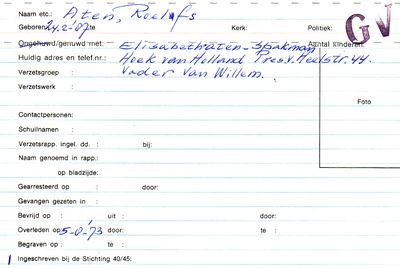 Naam etc.: Aten, Roelofs
Geboren 24.2-'07 te Kerk: Politiek: GV
Ongehuwd/gehuwd met: Elisabeth Aten-Spakman Aantal kinderen:
Huidig adres en telef.nr.: Hoek van Holland Pres. v. Heelstr. 44.
Verzetsgroep : Vader van Willem.
Verzetswerk :
Foto
Contactpersonen:
Schuilnamen :
Verzetsrapp. ingel. dd. : bij:
Naam genoemd in rapp.:
op bladzijde:
Gearresteerd op : door:
Gevangen gezeten in :
Bevrijd op : uit : door:
Overleden op 5-8-'73 door: te :
Begraven op : te :
Ingeschreven bij de Stichting 40/45: